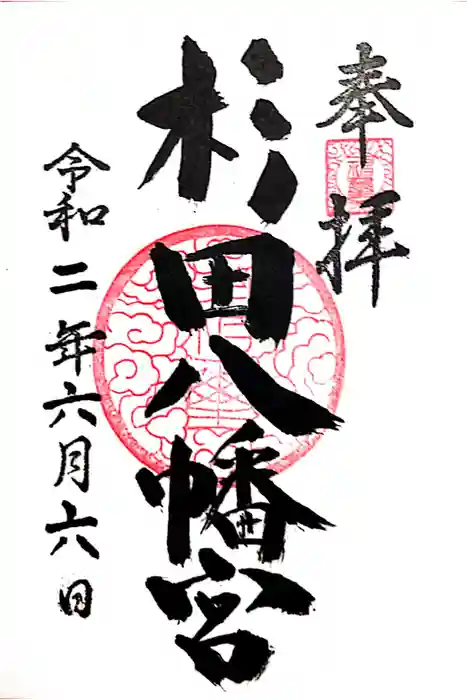 奉拝
杉田八幡宮
令和二年六月六日